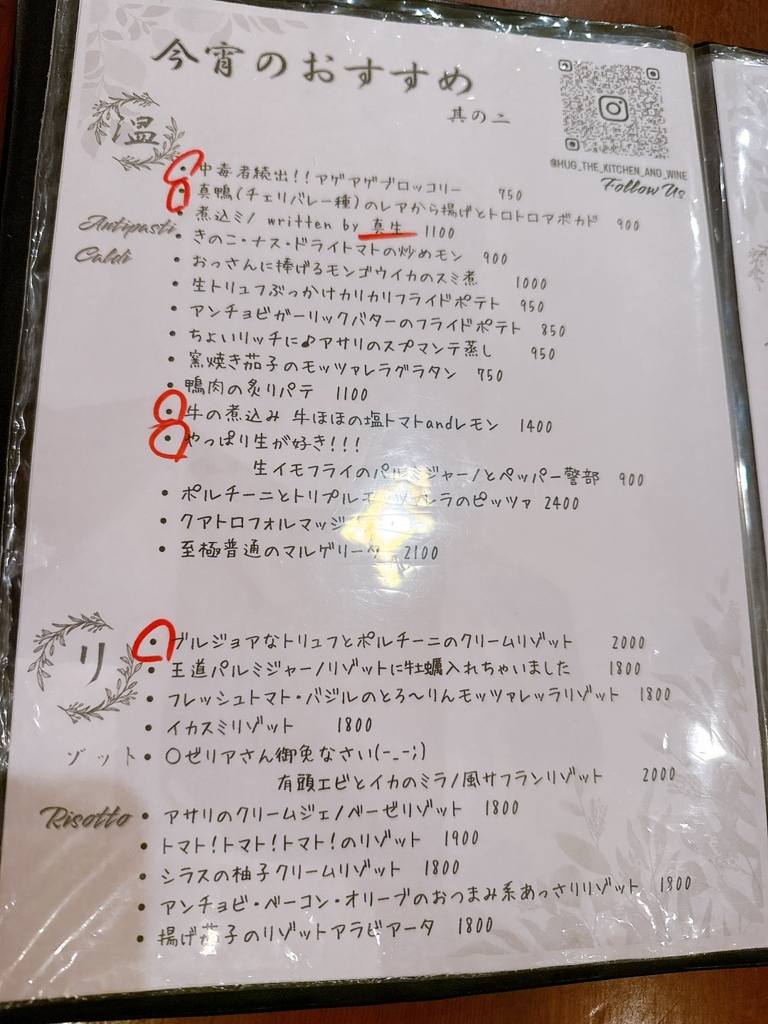 今宵のおすすめ
其の二
@HUG_THE_KITCHEN_AND_WINE
Follow Us
温
Antipasti
Caldi
・中毒者続出!!アゲアゲブロッコリー 750
・真鴨(チェリバレー種)のレアから揚げとトロトロアボカド 900
・煮込ミノ written by 真生 1100
・きのこ・ナス・ドライトマトの炒めモン 900
・おっさんに捧げるモンゴウイカのスミ煮 1000
・生トリュフぶっかけカリカリフライドポテト 950
・アンチョビガーリックバターのフライドポテト 850
・ちょいリッチに♪アサリのスプマンテ蒸し 950
・窯焼き茄子のモッツァレラグラタン 750
・鴨肉の炙りパテ 1100
・牛の煮込み 牛ほほの塩トマトandレモン 1400
・やっぱり生が好き!!!
生イモフライのパルミジャーノとペッパー警部 900
・ポルチーニとトリプルモッツァレラのピッツァ 2400
・クアトロフォルマッジ
・至極普通のマルゲリータ 2100
リ
ゾット
Risotto
・ブルジョアなトリュフとポルチーニのクリームリゾット 2000
・王道パルミジャーノリゾットに牡蠣入れちゃいました 1800
・フレッシュトマト・バジルのとろ〜りんモッツァレッラリゾット 1800
・イカスミリゾット 1800
・〇ゼリアさん御免なさい(-_-;)
有頭エビとイカのミラノ風サフランリゾット 2000
・アサリのクリームジェノベーゼリゾット 1800
・トマト!トマト!トマト!のリゾット 1900
・シラスの柚子クリームリゾット 1800
・アンチョビ・ベーコン・オリーブのおつまみ系あっさりリゾット 1800
・揚げ茄子のリゾットアラビアータ 1800